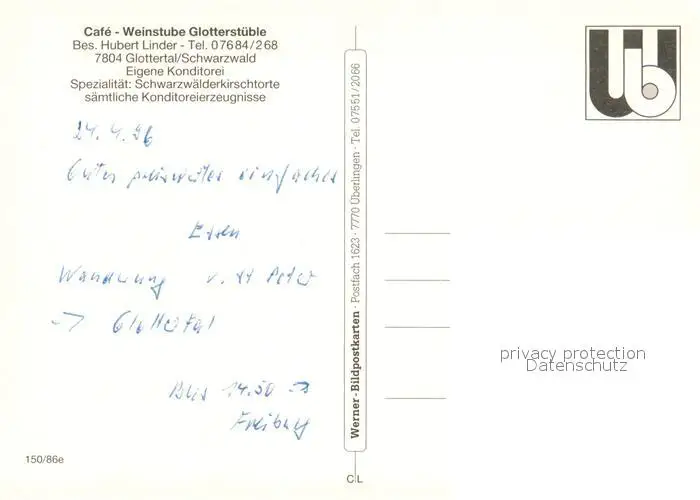 Café - Weinstube Glotterstüble
Bes. Hubert Linder - Tel. 07684/268
7804 Glottertal/Schwarzwald
Eigene Konditorei
Spezialität: Schwarzwälderkirschtorte
sämtliche Konditoreierzeugnisse
24.4.96
Gutes preiswertes einfaches
Essen
Wanderung v. St Peter
-> Glottertal
Bus 14.50 ->
Freiburg
150/86e
Werner-Bildpostkarten · Postfach 1623 · 7770 Überlingen · Tel. 07551/2066
CL
privacy protection
Datenschutz